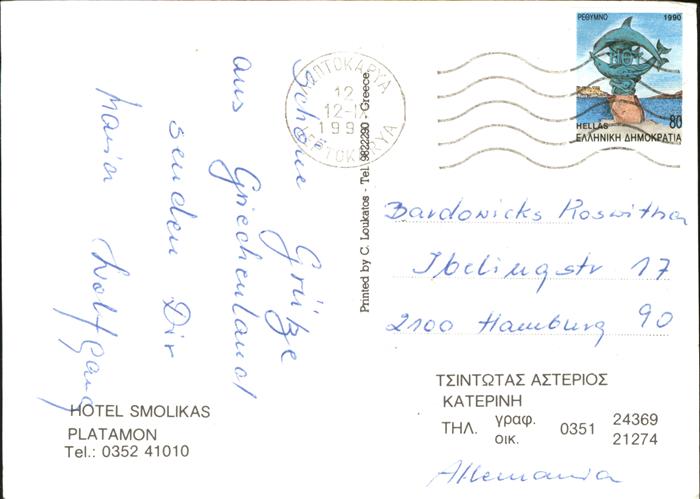 Schöne Grüße
aus Griechenland
senden Dir
Maria Wolfgang
HOTEL SMOLIKAS
PLATAMON
Tel.: 0352 41010
Printed by C. Loukatos - Tel. 9822290 - Greece.
ΛΕΠΤΟΚΑΡΥΑ
12
12-IX
199
ΛΕΠΤΟΚΑΡΥΑ
ΡΕΘΥΜΝΟ 1990
HELLAS 80
ΕΛΛΗΝΙΚΗ ΔΗΜΟΚΡΑΤΙΑ
Bardowicks Roswitha
Ibelingstr 17
2100 Hamburg 90
ΤΣΙΝΤΩΤΑΣ ΑΣΤΕΡΙΟΣ
ΚΑΤΕΡΙΝΗ
ΤΗΛ. γραφ. 0351 24369
οικ. 21274
Allemania